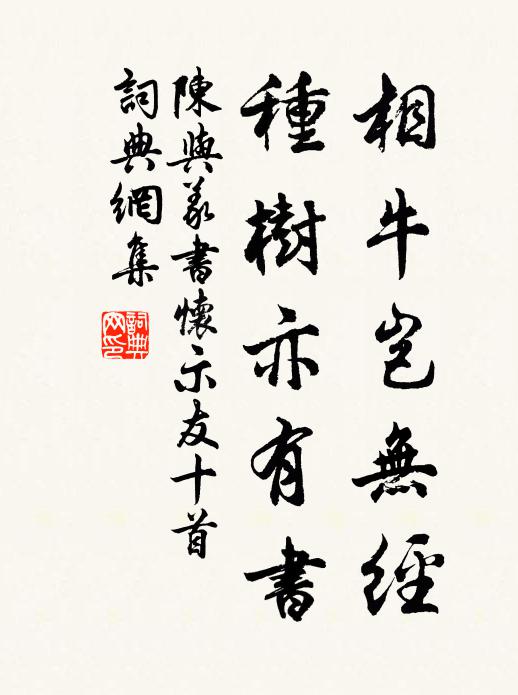 相牛豈無經
種樹亦有書
陳與義書懷示友十首
詞典網集
詞典网印